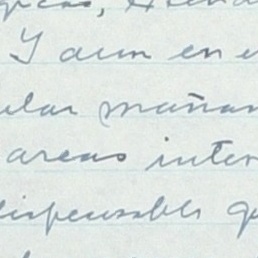 Y aun en
ular mañan
areas inter
dispensable q